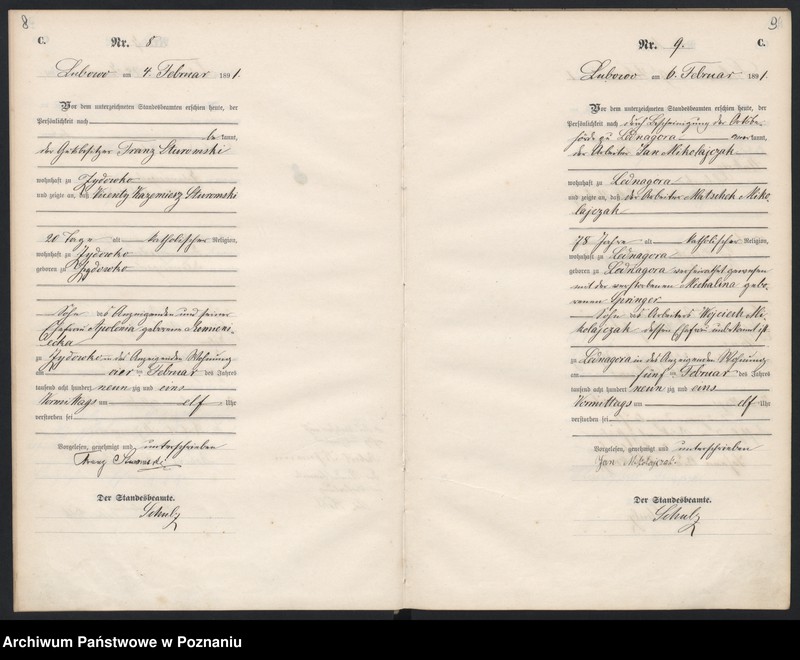 8
C.
Nr. 8
Lubowo am 4. Februar 1891.
Vor dem unterzeichneten Standesbeamten erschien heute, der
Persönlichkeit nach
be kannt,
der Gutsbesitzer Franz Sturomski
wohnhaft zu Zydowko
und zeigte an, daß Vicenty Kazemierz Sturomski
20 Tage alt katholischer Religion,
wohnhaft zu Zydowko
geboren zu Zydowko
Sohn des Anzeigenden und seiner
Ehefrau Apolonia geborene
zu Zydowko in des Anzeigenden Wohnung
am vier ten Februar des Jahres
tausend acht hundert neun zig und eins
Vormittags um elf Uhr
verstorben sei
Vorgelesen, genehmigt und unterschrieben
Franz
Der Standesbeamte.
Schulz
9
Nr. 9. C.
Lubowo am 6. Februar 1891.
Vor dem unterzeichneten Standesbeamten erschien heute, der
Persönlichkeit nach durch Bescheinigung der Ortsbe-
hörde zu Lednagora aner kannt,
der Arbeiter Jan Mikolajczak
wohnhaft zu Lednagora
und zeigte an, daß der Arbeiter Matschek Miko-
lajczak
78 Jahre alt katholischer Religion,
wohnhaft zu Lednagora
geboren zu Lednagora verheirathet gewesen
mit der verstorbenen Michalina gebo-
renen Springer
Sohn des Arbeiters Wojciech Mi-
kolajczak dessen Ehefrau unbekannt ist
zu Lednagora in des Anzeigenden Wohnung
am fünf ten Februar des Jahres
tausend acht hundert neun zig und eins
Vormittags um elf Uhr
verstorben sei
Vorgelesen, genehmigt und unterschrieben
Jan Mikolajczak
Der Standesbeamte.
Schulz
Archiwum Państwowe w Poznaniu